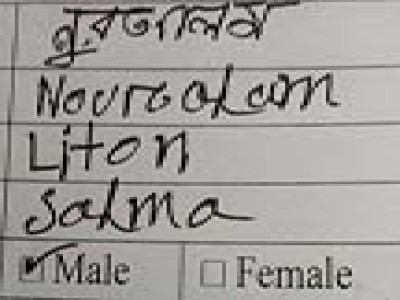 নুরআলম
Nouraalam
Liton
Salma
☑ Male ☐ Female